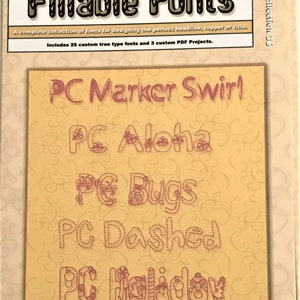 Fillable Fonts
A complete collection of fonts for designing the perfect headline, topper or title.
Includes 25 custom true type fonts and 3 custom PDF Projects.
PC Marker Swirl
PC Aloha
PC Bugs
PC Dashed
PC Holiday